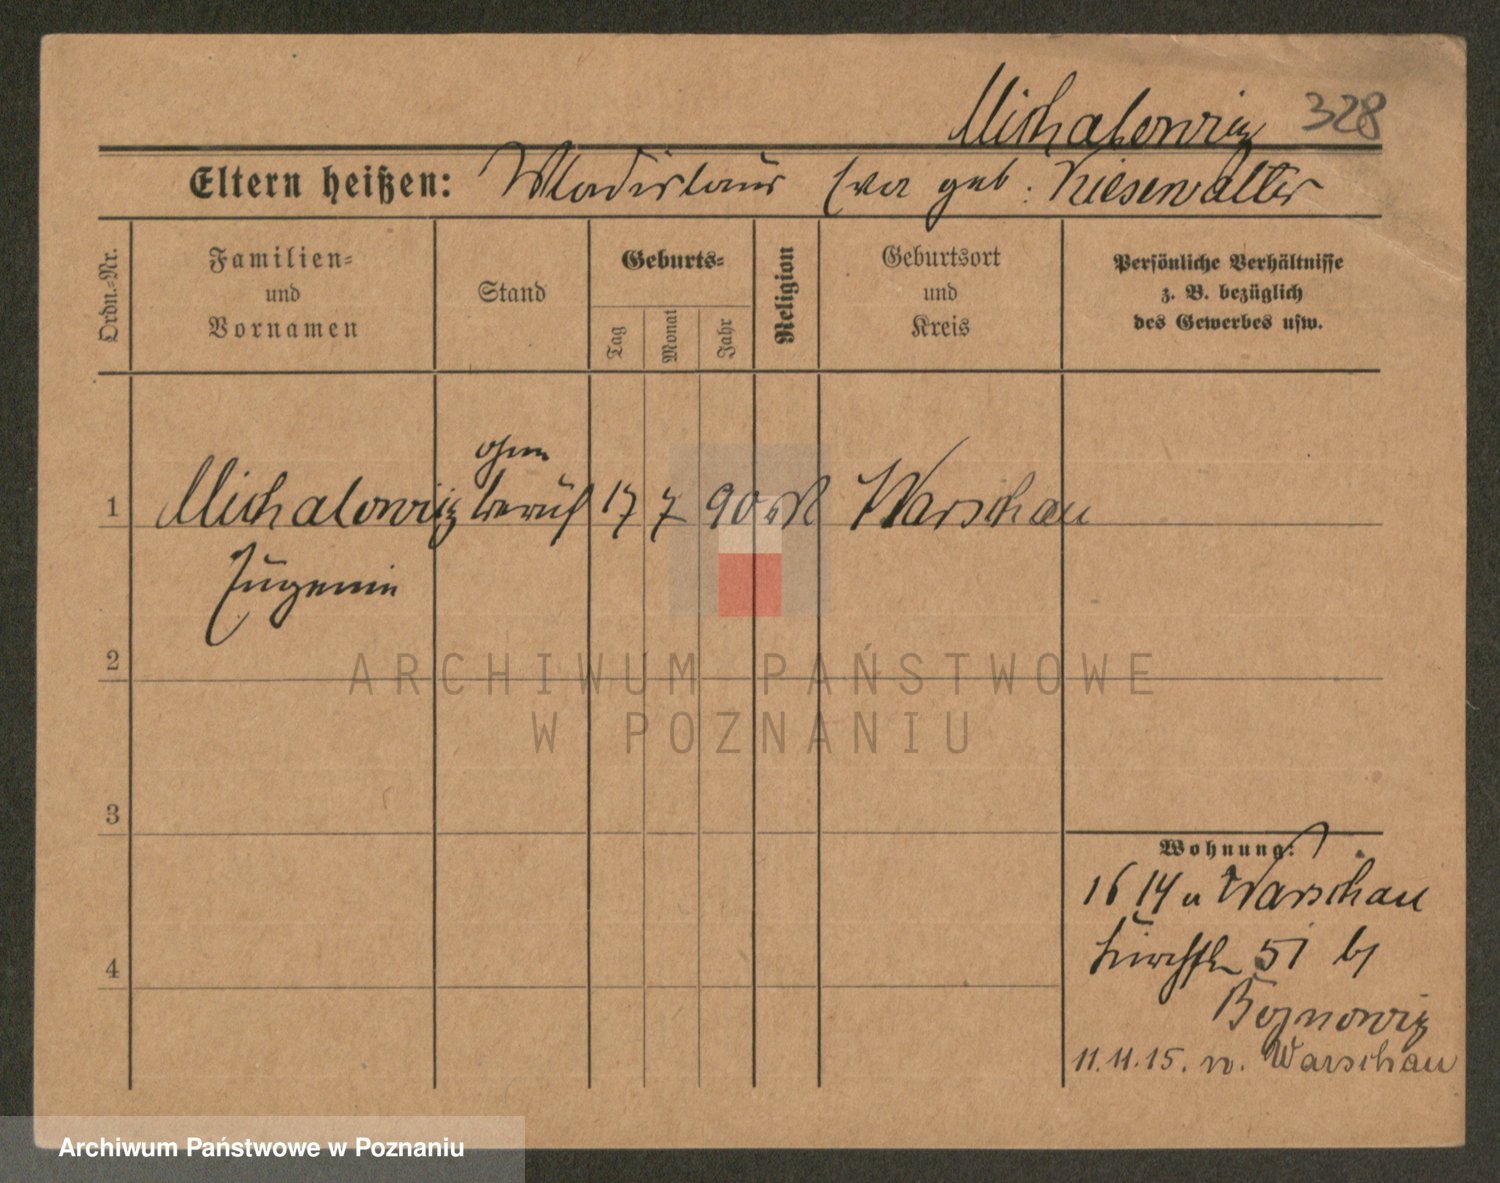 Michalowicz 328
Eltern heißen: Wladislaus Eva geb. Kiesewalter
Ordn.-Nr.
Familien-
und
Vornamen
Stand
Geburts-
Tag
Monat
Jahr
Religion
Geburtsort
und
Kreis
Persönliche Verhältnisse
z. B. bezüglich
des Gewerbes usw.
ohne
1 Michalowicz beruf 17 7 90 Warschau
Eugenie
2
3
4
Wohnung:
16 14 Warschau
51 by
11.11.15. n. Warschau
ARCHIWUM PAŃSTWOWE
W POZNANIU
Archiwum Państwowe w Poznaniu